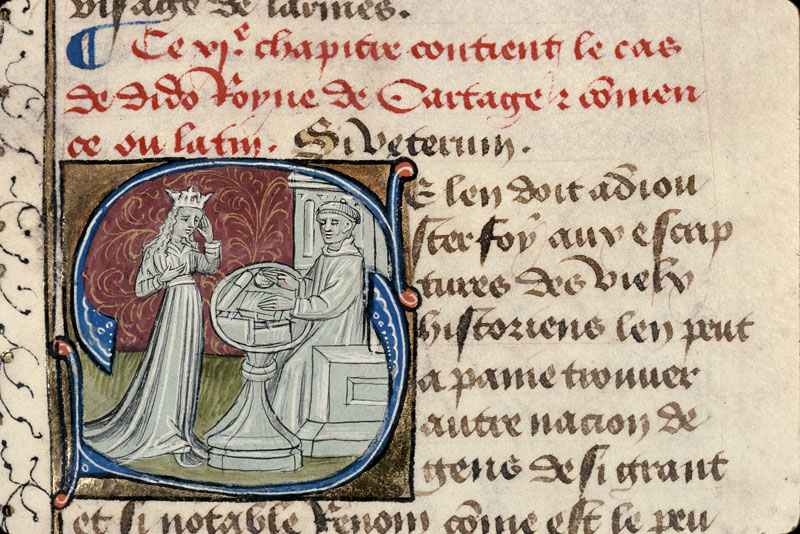 visage de larmes.
¶ Ce vjᵉ chapitre contient le cas
de dido Royne de Cartage ⁊ cōmen
ce ou latin. Si veterum.
S E len doit adiou
ster foy aux escrip
tures des vielx
historiens len peut
a paine trouuer
autre nacion de
gens de si grant
et si notable Renom cōme est le peu